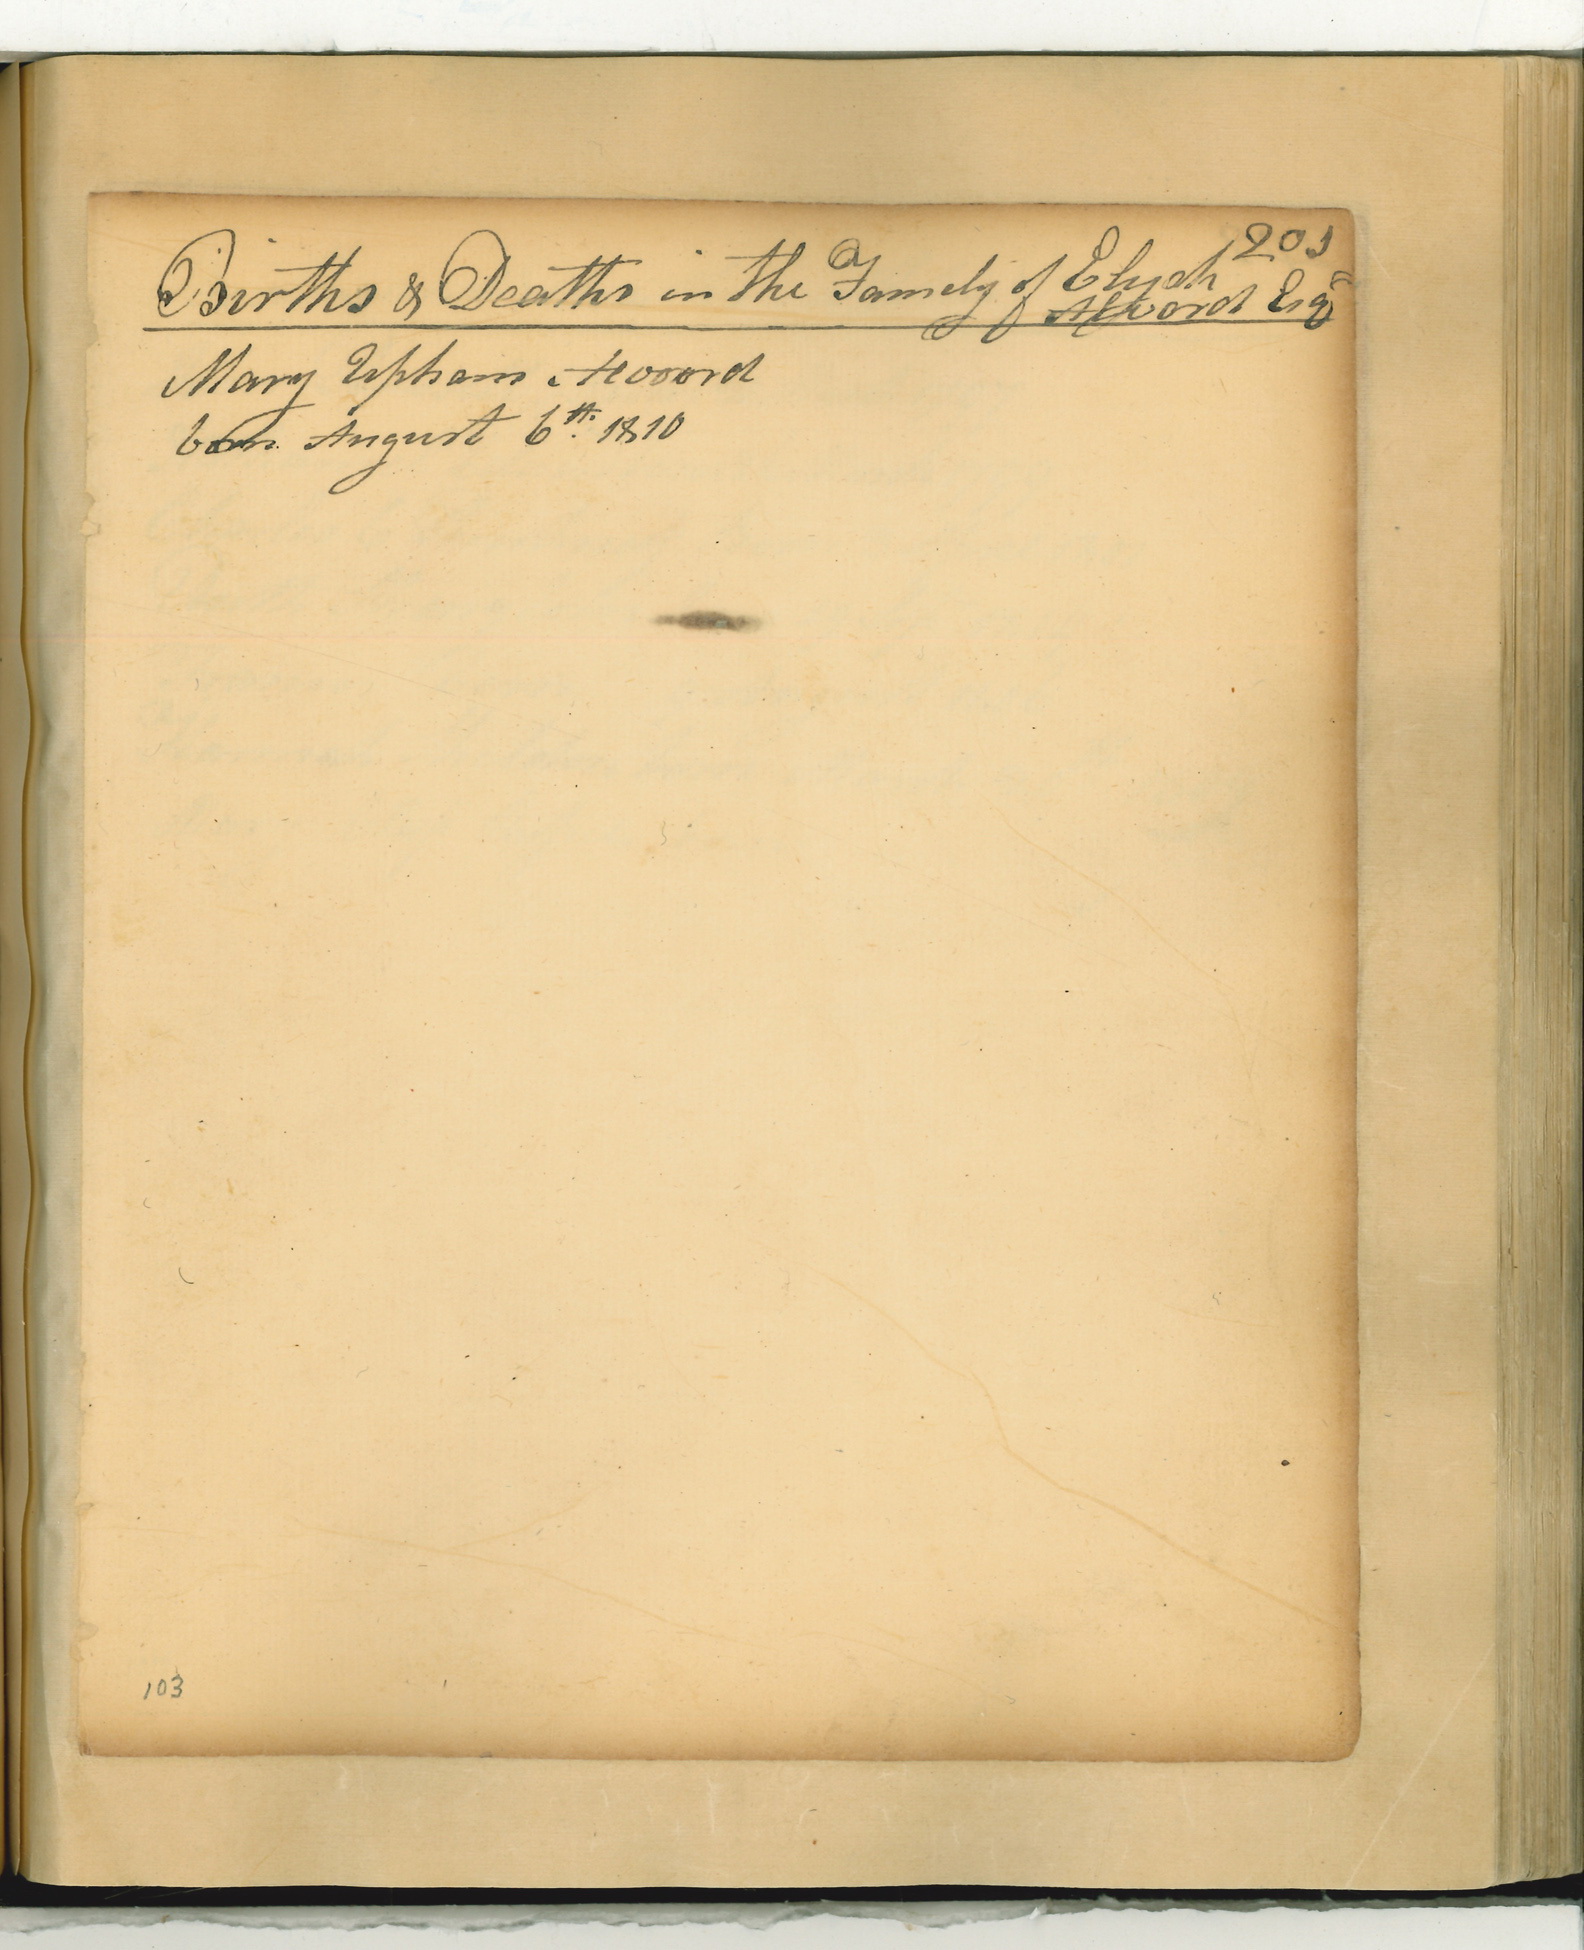 201
Births & Deaths in the Family of Elijah
Alvord Esqr
Mary Upham Alvord
born August 6th. 1810
103